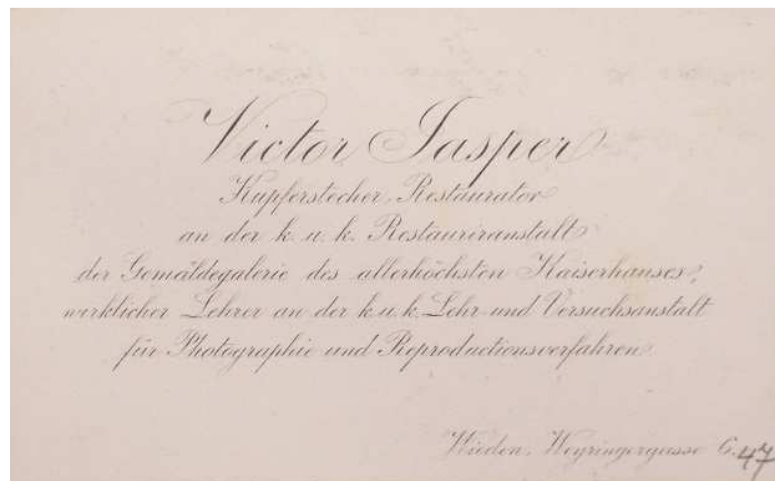 Victor Jasper
Kupferstecher, Restaurator
an der k. u. k. Restauriranstalt
der Gemäldegalerie des allerhöchsten Kaiserhauses,
wirklicher Lehrer an der k. u. k. Lehr- und Versuchsanstalt
für Photographie und Reproductionsverfahren.
Wieden, Weyringergasse 6.
47